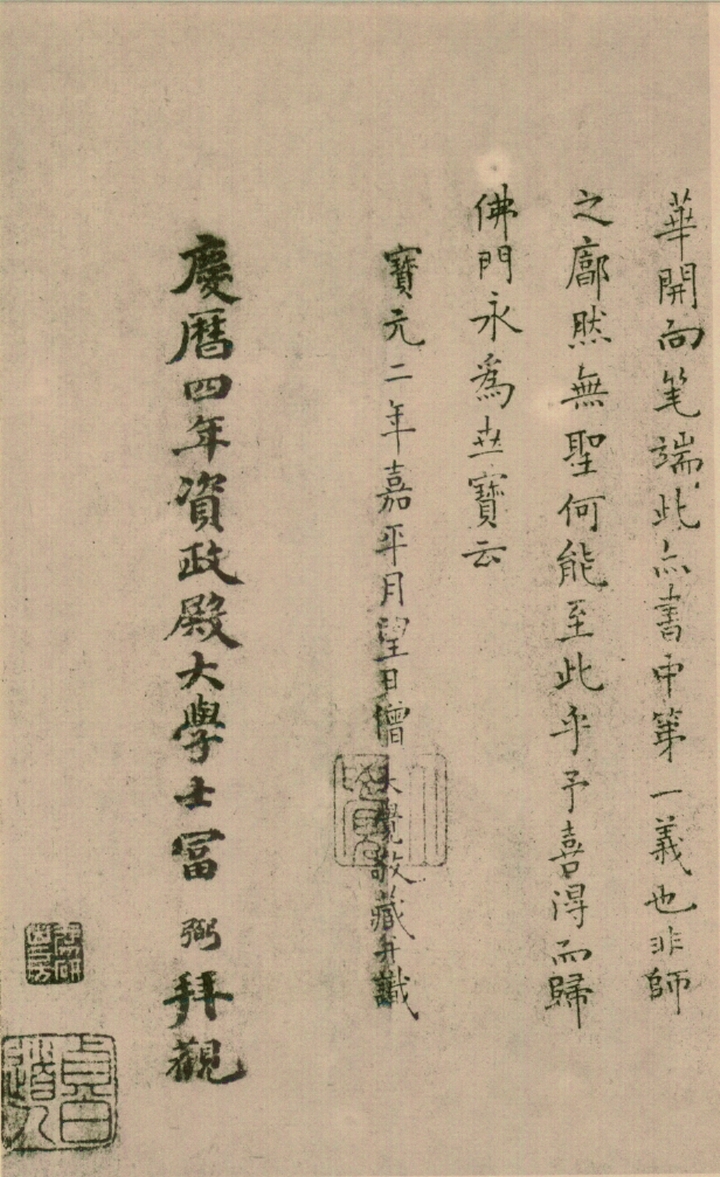 華開向筆端此亦書中第一義也非師
之廓然無聖何能至此乎予喜得而歸
佛門永為世寶云
寶元二年嘉平月望日僧大覺敬藏并識
慶曆四年資政殿大學士冨弼拜觀